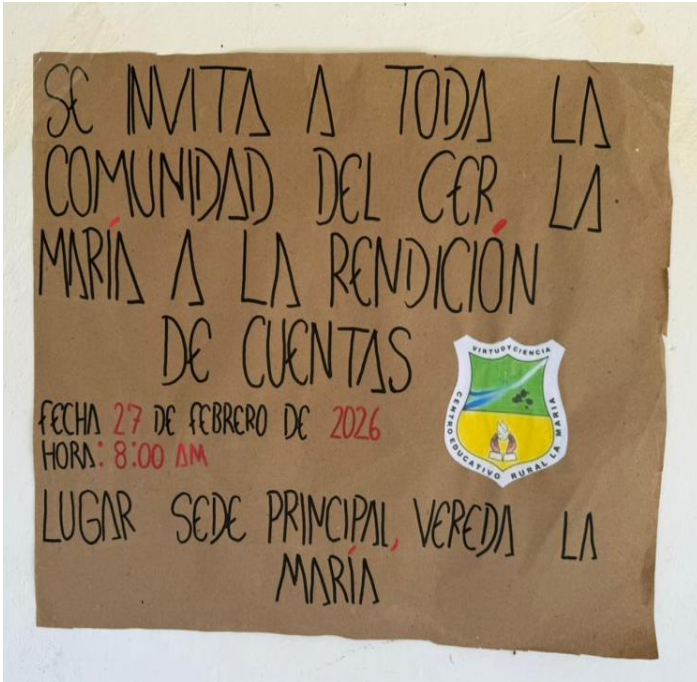 SE INVITA A TODA LA
COMUNIDAD DEL CER LA
MARÍA A LA RENDICIÓN
DE CUENTAS
FECHA 27 DE FEBRERO DE 2026
HORA: 8:00 AM
VIRTUD Y CIENCIA
CENTRO EDUCATIVO RURAL LA MARIA
LUGAR SEDE PRINCIPAL, VEREDA LA
MARÍA